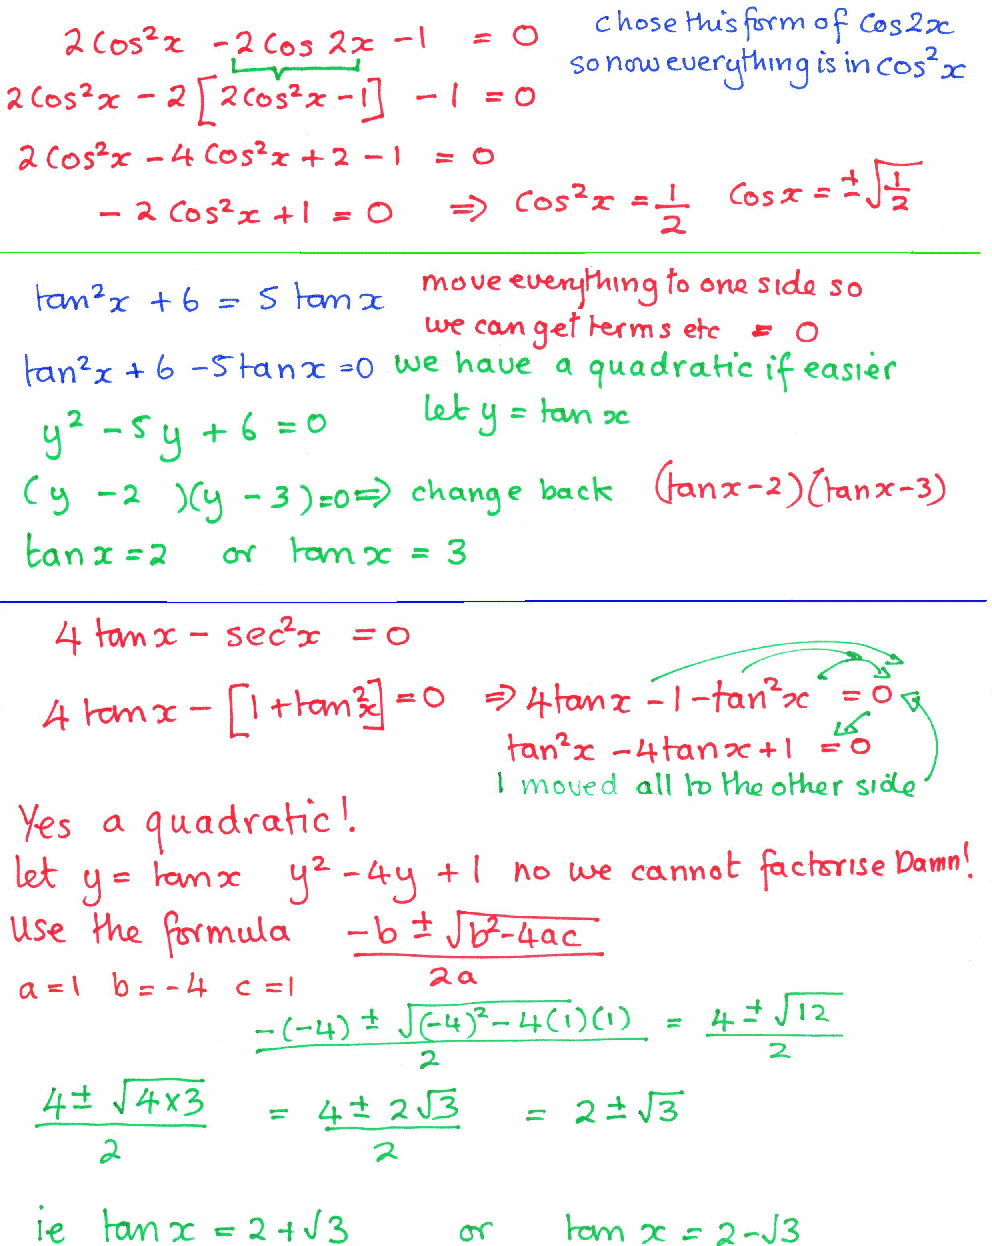 2cos²x - 2cos 2x - 1 = 0 chose this form of cos2x
so now everything is in cos²x
2cos²x - 2[2cos²x - 1] - 1 = 0
2cos²x - 4cos²x + 2 - 1 = 0
- 2cos²x + 1 = 0 ⇒ cos²x = 1/2 cosx = ±√(1/2)
tan²x + 6 = 5 tanx move everything to one side so
we can get terms etc = 0
tan²x + 6 - 5tanx = 0 we have a quadratic if easier
let y = tan x
y² - 5y + 6 = 0
(y - 2)(y - 3) = 0 ⇒ change back (tanx - 2)(tanx - 3)
tan x = 2 or tan x = 3
4 tan x - sec²x = 0
4 tan x - [1 + tan²x] = 0 ⇒ 4tanx - 1 - tan²x = 0
tan²x - 4tanx + 1 = 0
I moved all to the other side
Yes a quadratic!
let y = tan x y² - 4y + 1 no we cannot factorise Damn!
Use the formula (-b ± √(b² - 4ac))/2a
a = 1 b = -4 c = 1
(-(-4) ± √((-4)² - 4(1)(1)))/2 = (4 ± √12)/2
(4 ± √(4×3))/2 = (4 ± 2√3)/2 = 2 ± √3
ie tan x = 2 + √3 or tan x = 2 - √3